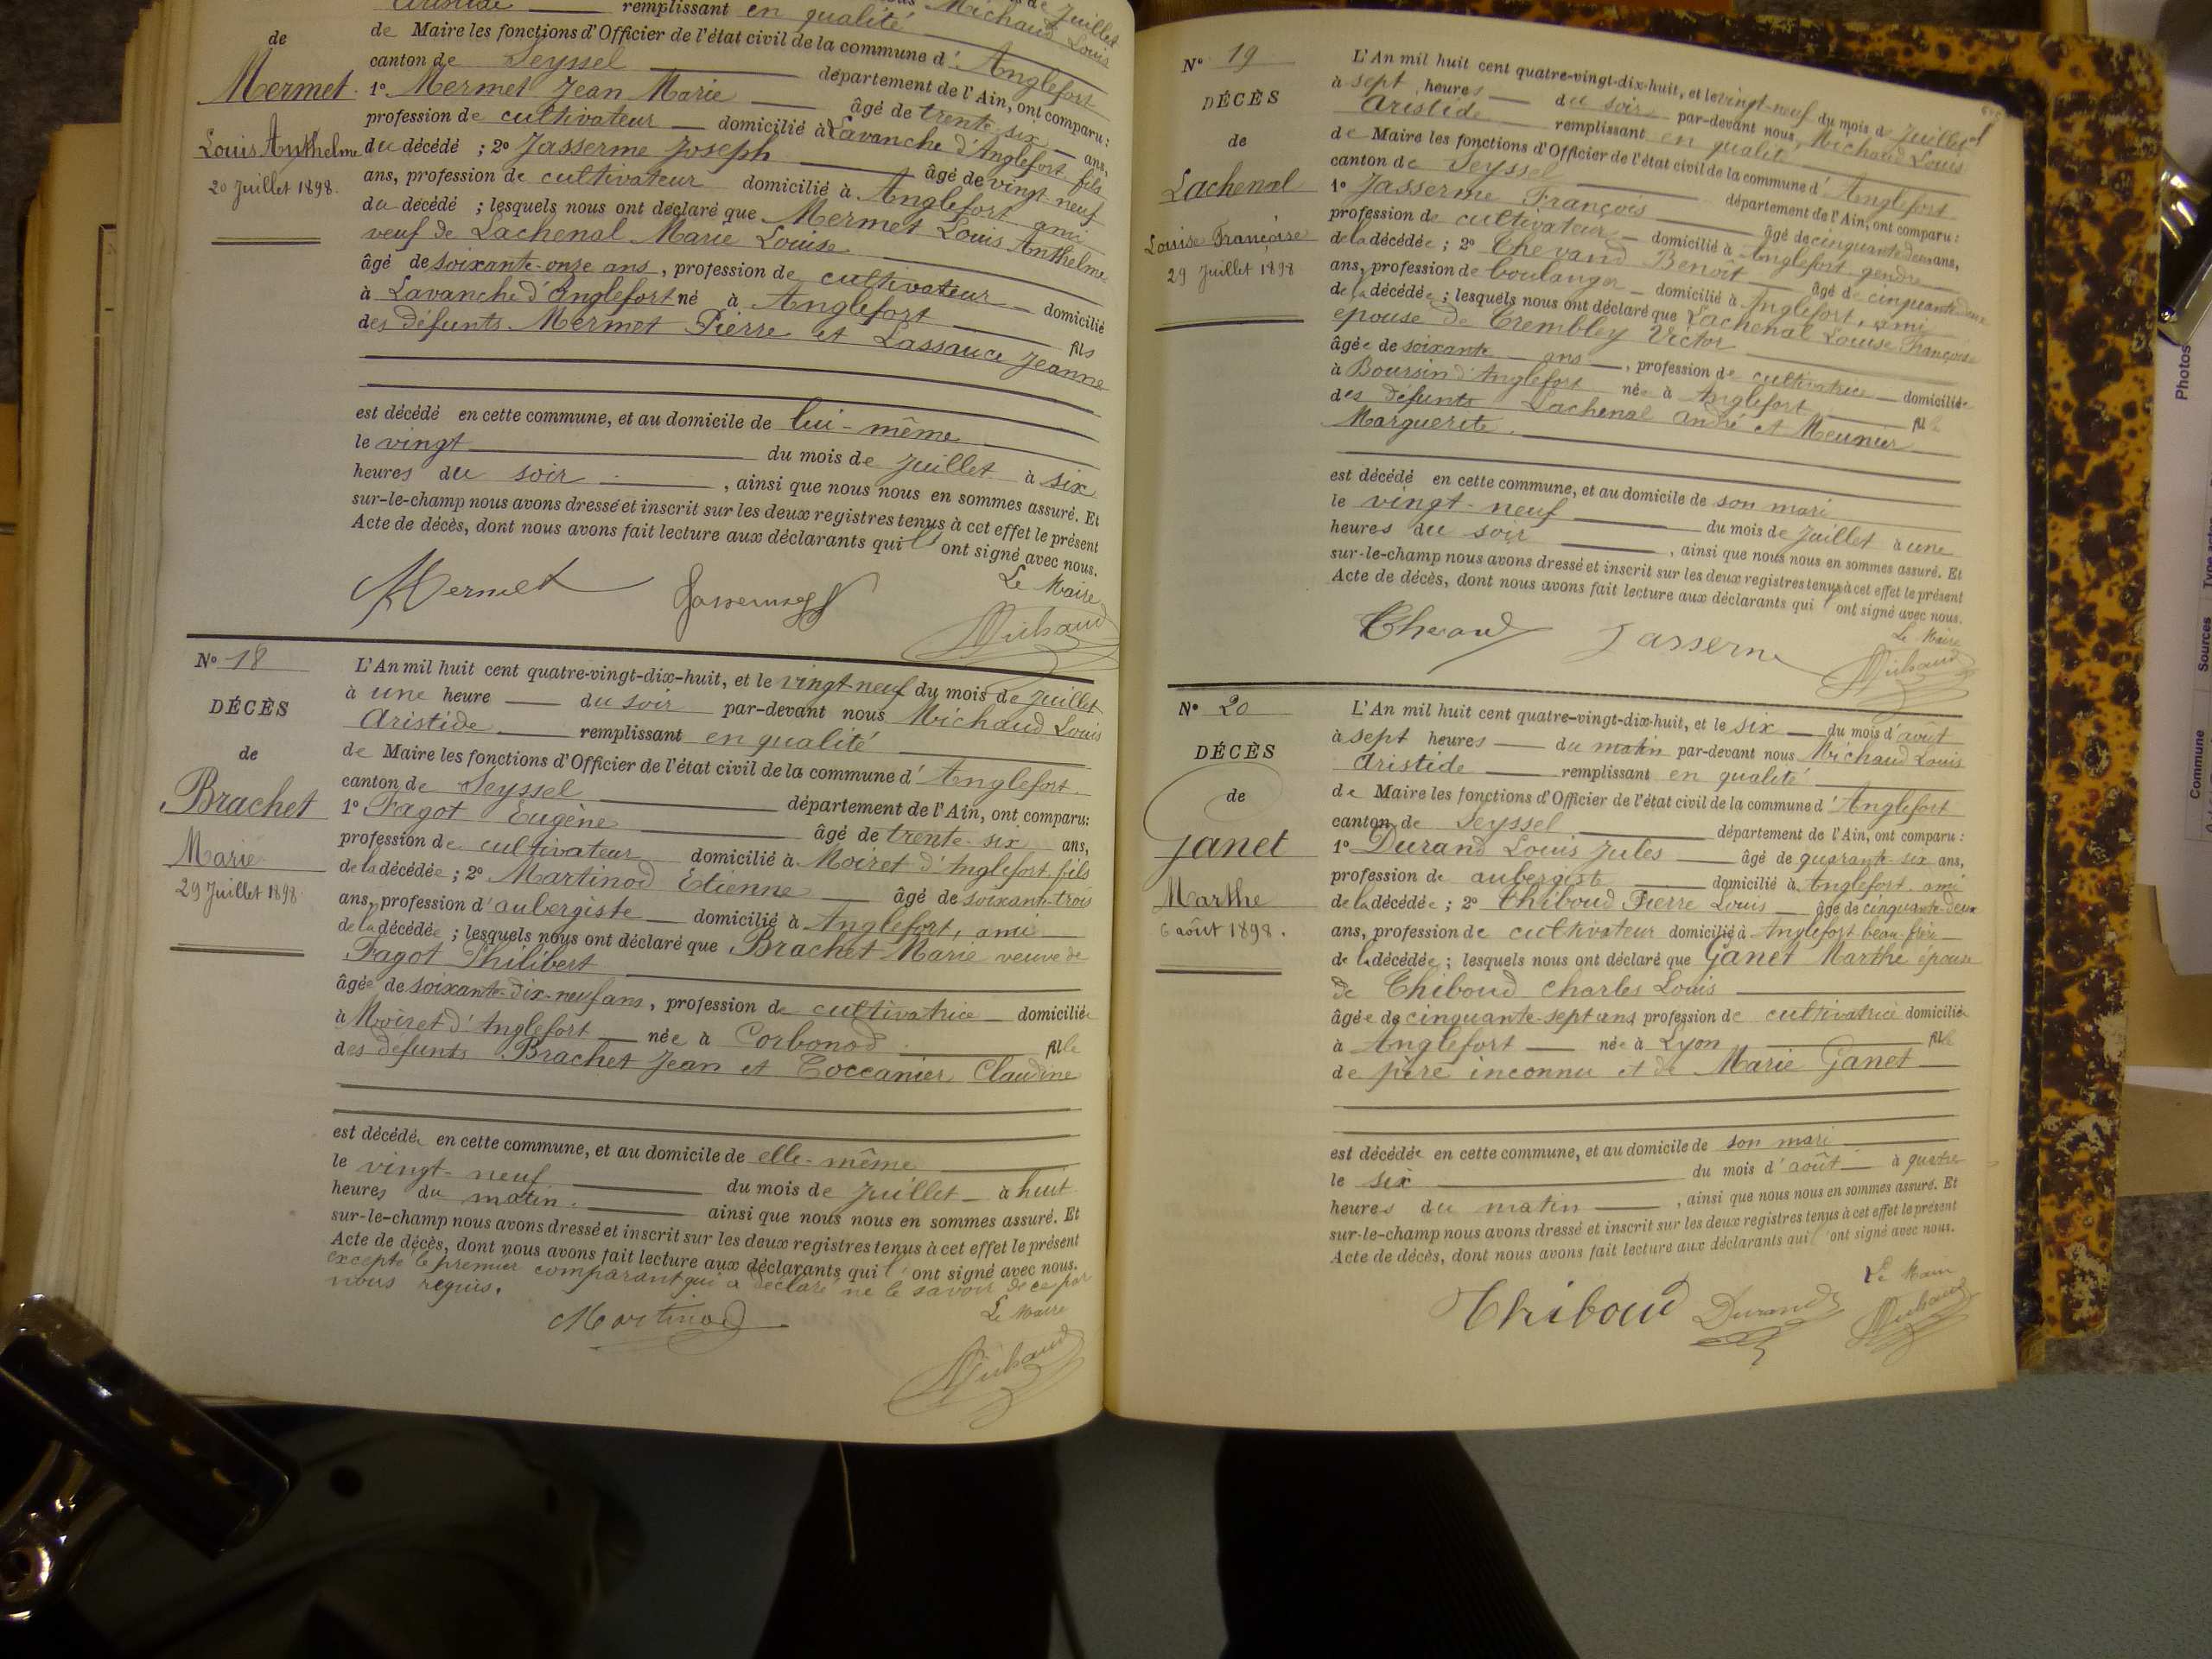 Aristide remplissant en qualité
de Maire les fonctions d'Officier de l'état civil de la commune d'Anglefort
canton de Seyssel département de l'Ain, ont comparu :
de
Mermet
Louis Anthelme
20 Juillet 1898.
1° Mermet Jean Marie âgé de trente-six ans,
profession de cultivateur domicilié à Lavanche d'Anglefort fils
du décédé ; 2° Jasserme Joseph âgé de vingt neuf
ans, profession de cultivateur domicilié à Anglefort ami
du décédé ; lesquels nous ont déclaré que Mermet Louis Anthelme
veuf de Lachenal Marie Louise
âgé de soixante-onze ans, profession de cultivateur domicilié
à Lavanche d'Anglefort né à Anglefort fils
des défunts Mermet Pierre et Lassauce Jeanne
est décédé en cette commune, et au domicile de lui-même
le vingt du mois de Juillet à six
heures du soir, ainsi que nous nous en sommes assuré. Et
sur-le-champ nous avons dressé et inscrit sur les deux registres tenus à cet effet le présent
Acte de décès, dont nous avons fait lecture aux déclarants qui l'ont signé avec nous.
Le Maire
Mermet
Michaud
N° 18
DÉCÈS
de
Brachet
Marie
29 Juillet 1898
L'An mil huit cent quatre-vingt-dix-huit, et le vingt-neuf du mois de Juillet
à une heure du soir par-devant nous Michaud Louis
Aristide remplissant en qualité
de Maire les fonctions d'Officier de l'état civil de la commune d'Anglefort
canton de Seyssel département de l'Ain, ont comparu:
1° Fagot Eugène âgé de trente-six ans,
profession de cultivateur domicilié à Moiret d'Anglefort fils
de la décédée ; 2° Martinod Etienne âgé de soixante-trois
ans, profession d'aubergiste domicilié à Anglefort, ami
de la décédée ; lesquels nous ont déclaré que Brachet Marie veuve de
Fagot Philibert
âgée de soixante-dix-neuf ans, profession de cultivatrice domiciliée
à Moiret d'Anglefort née à Corbonod fille
des défunts Brachet Jean et Coccanier Claudine
est décédée en cette commune, et au domicile de elle-même
le vingt-neuf du mois de Juillet à huit
heures du matin. ainsi que nous nous en sommes assuré. Et
sur-le-champ nous avons dressé et inscrit sur les deux registres tenus à cet effet le présent
Acte de décès, dont nous avons fait lecture aux déclarants qui l'ont signé avec nous.
excepté le premier comparant qui a déclaré ne le savoir de ce par
nous requis.
Le Maire
Martinod
Michaud
N° 19
DÉCÈS
de
Lachenal
Louise Françoise
29 Juillet 1898
L'An mil huit cent quatre-vingt-dix-huit, et le vingt-neuf du mois de Juillet
à sept heures du soir par-devant nous, Michaud Louis
Aristide remplissant en qualité
de Maire les fonctions d'Officier de l'état civil de la commune d'Anglefort
canton de Seyssel département de l'Ain, ont comparu :
1° Jasserme François âgé de cinquante deux ans,
profession de cultivateur domicilié à Anglefort gendre
de la décédée ; 2° Chevand Benoît âgé de cinquante deux
ans, profession de boulanger domicilié à Anglefort, ami
de la décédée ; lesquels nous ont déclaré que Lachenal Louise Françoise
épouse de Trembley Victor
âgée de soixante ans, profession de cultivatrice domiciliée
à Boursin d'Anglefort née à Anglefort fille
des défunts Lachenal André et Meunier
Marguerite.
est décédé en cette commune, et au domicile de son mari
le vingt-neuf du mois de Juillet à une
heures du soir, ainsi que nous nous en sommes assuré. Et
sur-le-champ nous avons dressé et inscrit sur les deux registres tenus à cet effet le présent
Acte de décès, dont nous avons fait lecture aux déclarants qui l'ont signé avec nous.
Le Maire
Chevand Jasserme
Michaud
N° 20
DÉCÈS
de
Ganet
Marthe
6 août 1898.
L'An mil huit cent quatre-vingt-dix-huit, et le six du mois d'août
à sept heures du matin par-devant nous Michaud Louis
Aristide remplissant en qualité
de Maire les fonctions d'Officier de l'état civil de la commune d'Anglefort
canton de Seyssel département de l'Ain, ont comparu :
1° Durand Louis Jules âgé de quarante-six ans,
profession de aubergiste domicilié à Anglefort ami
de la décédée ; 2° Thiboud Pierre Louis âgé de cinquante-deux
ans, profession de cultivateur domicilié à Anglefort beau-frère
de la décédée ; lesquels nous ont déclaré que Ganet Marthe épouse
de Thiboud Charles Louis
âgée de cinquante-sept ans, profession de cultivatrice domiciliée
à Anglefort née à Lyon fille
de père inconnu et de Marie Ganet
est décédée en cette commune, et au domicile de son mari
le six du mois d'août à quatre
heures du matin, ainsi que nous nous en sommes assuré. Et
sur-le-champ nous avons dressé et inscrit sur les deux registres tenus à cet effet le présent
Acte de décès, dont nous avons fait lecture aux déclarants qui l'ont signé avec nous.
Le Maire
Thiboud Durand Michaud
Photos
Sources
Commune